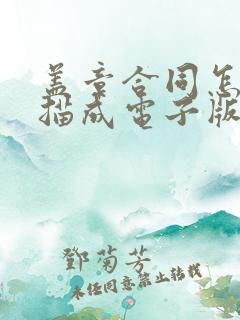 盖章合同怎
描成电子版
鄧菊芳
未经同意禁止转载